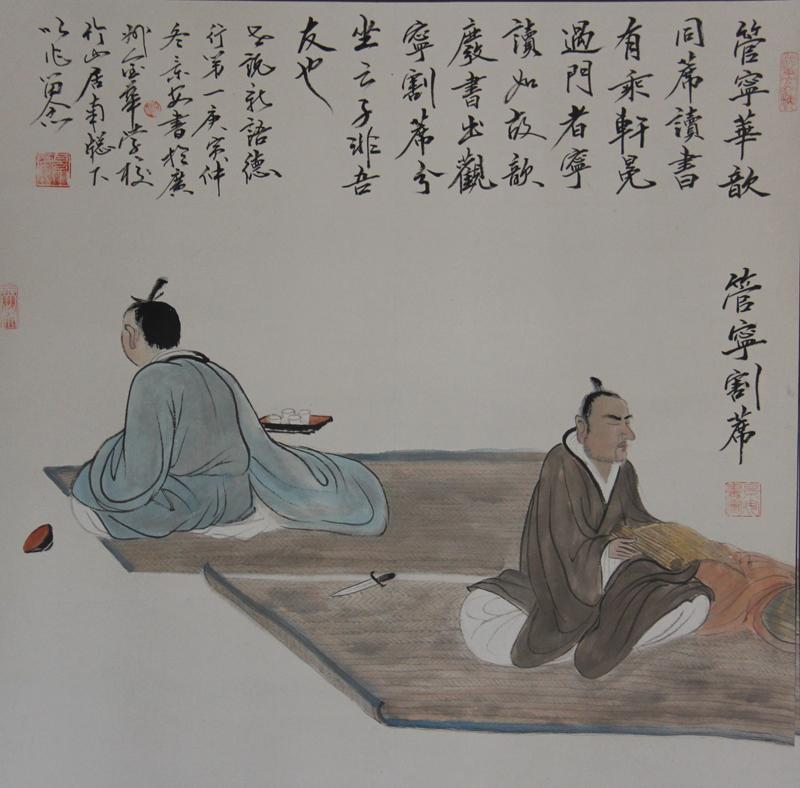 管寧華歆
同蓆讀書
有乘軒冕
過門者寧
讀如故歆
廢書出觀
寧割蓆分
坐云子非吾
友也
說新語德
行第一庚寅仲
冬書於廣
州華學校
竹山居南牕下
以作留念
管寧割蓆